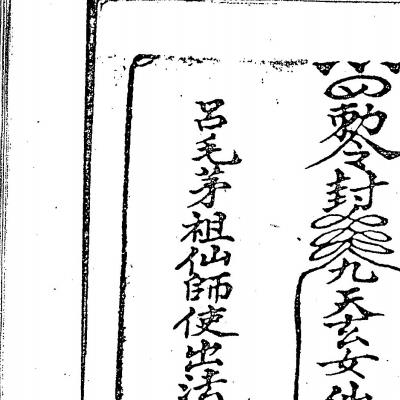 勅令封九天玄女仙
呂毛茅祖仙師使出法